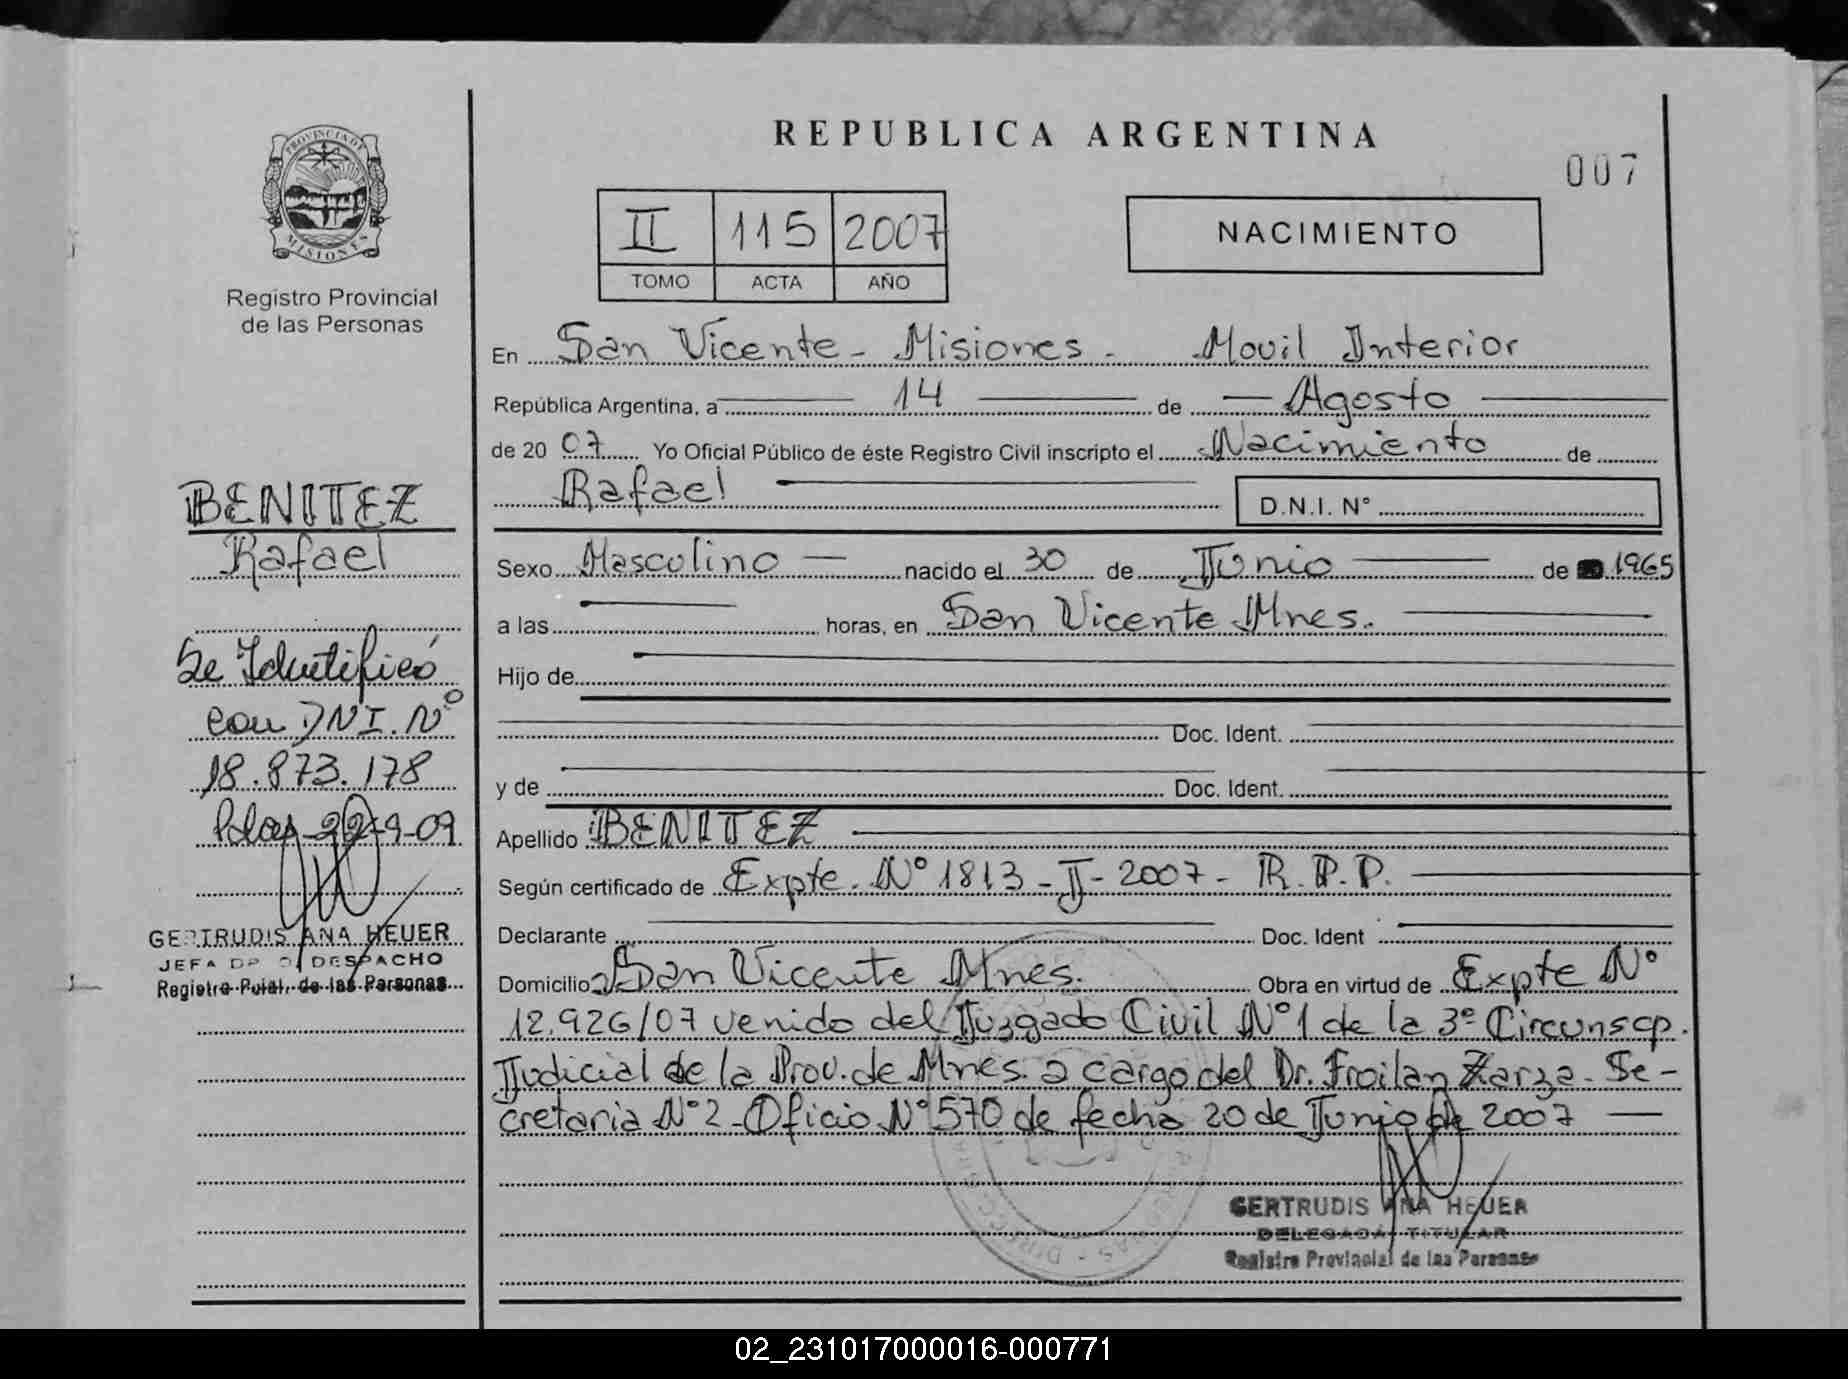 PROVINCIA DE
MISIONES
Registro Provincial
de las Personas
BENITEZ
Rafael
Se Identificó
con DNI. Nº
18.873.178
Pdas 22-9-09
GERTRUDIS ANA HEUER
JEFA DPTO DESPACHO
Registro Pcial. de las Personas
REPUBLICA ARGENTINA
007
II 115 2007
TOMO ACTA AÑO
NACIMIENTO
En San Vicente - Misiones - Movil Interior
República Argentina, a 14 de Agosto
de 20 07 Yo Oficial Público de éste Registro Civil inscripto el Nacimiento de
Rafael D.N.I. N°
Sexo Masculino nacido el 30 de Junio de 1965
a las horas, en San Vicente Mnes.
Hijo de
Doc. Ident.
y de Doc. Ident.
Apellido BENITEZ
Según certificado de Expte. Nº 1813 - J - 2007 - R.P.P.
Declarante Doc. Ident
Domicilio San Vicente Mnes. Obra en virtud de Expte Nº
12.926/07 venido del Juzgado Civil Nº 1 de la 3º Circunscp.
Judicial de la Prov. de Mnes. a cargo del Dr. Froilan Zarza - Se-
cretaria Nº 2 - Oficio Nº 570 de fecha 20 de Junio de 2007
GERTRUDIS ANA HEUER
DELEGADA TITULAR
Registro Provincial de las Personas
02_231017000016-000771